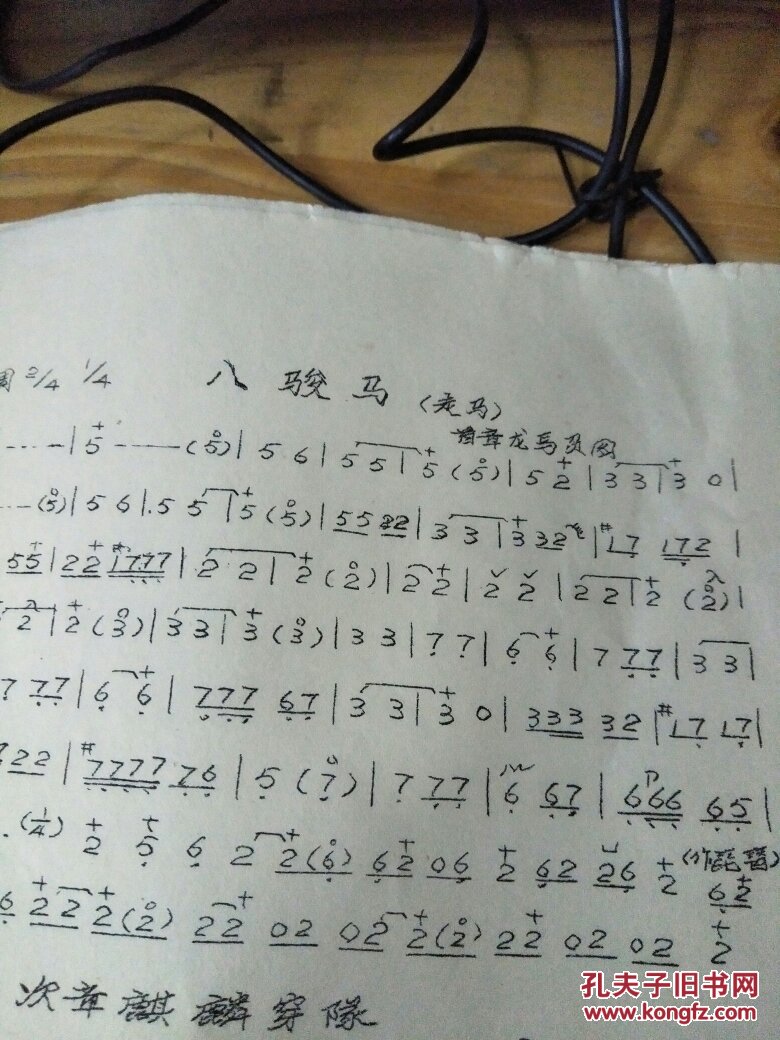 2/4 1/4 八駿马 (走马)
首章龙马负图
| 5 ······ (5) | 5 6 | 5 5 | 5 (5) | 5 2 | 3 3 | 3 0 |
(5) | 5 6 | 5 5 | 5 (5) | 55 22 | 3 3 | 3 32 | #17 172 |
55 | 22 #1777 | 2 2 | 2 (2) | 2 2 | 2 2 | 2 2 | 2 (2) |
2 | 2 (3) | 3 3 | 3 (3) | 3 3 | 7 7 | 6 6 | 7 77 | 3 3 |
7 77 | 6 6 | 777 67 | 3 3 | 3 0 | 333 32 | #17 17 |
722 | #7777 76 | 5 (7) | 7 77 | 6 67 | 666 65 |
(1/4) 2 5 6 2 2(6) 62 06 2 62 26 2 62
6 22 2(2) 22 02 02 2(2) 22 02 02 2
次章麒麟穿隊
孔夫子旧书网
www.kongfz.com